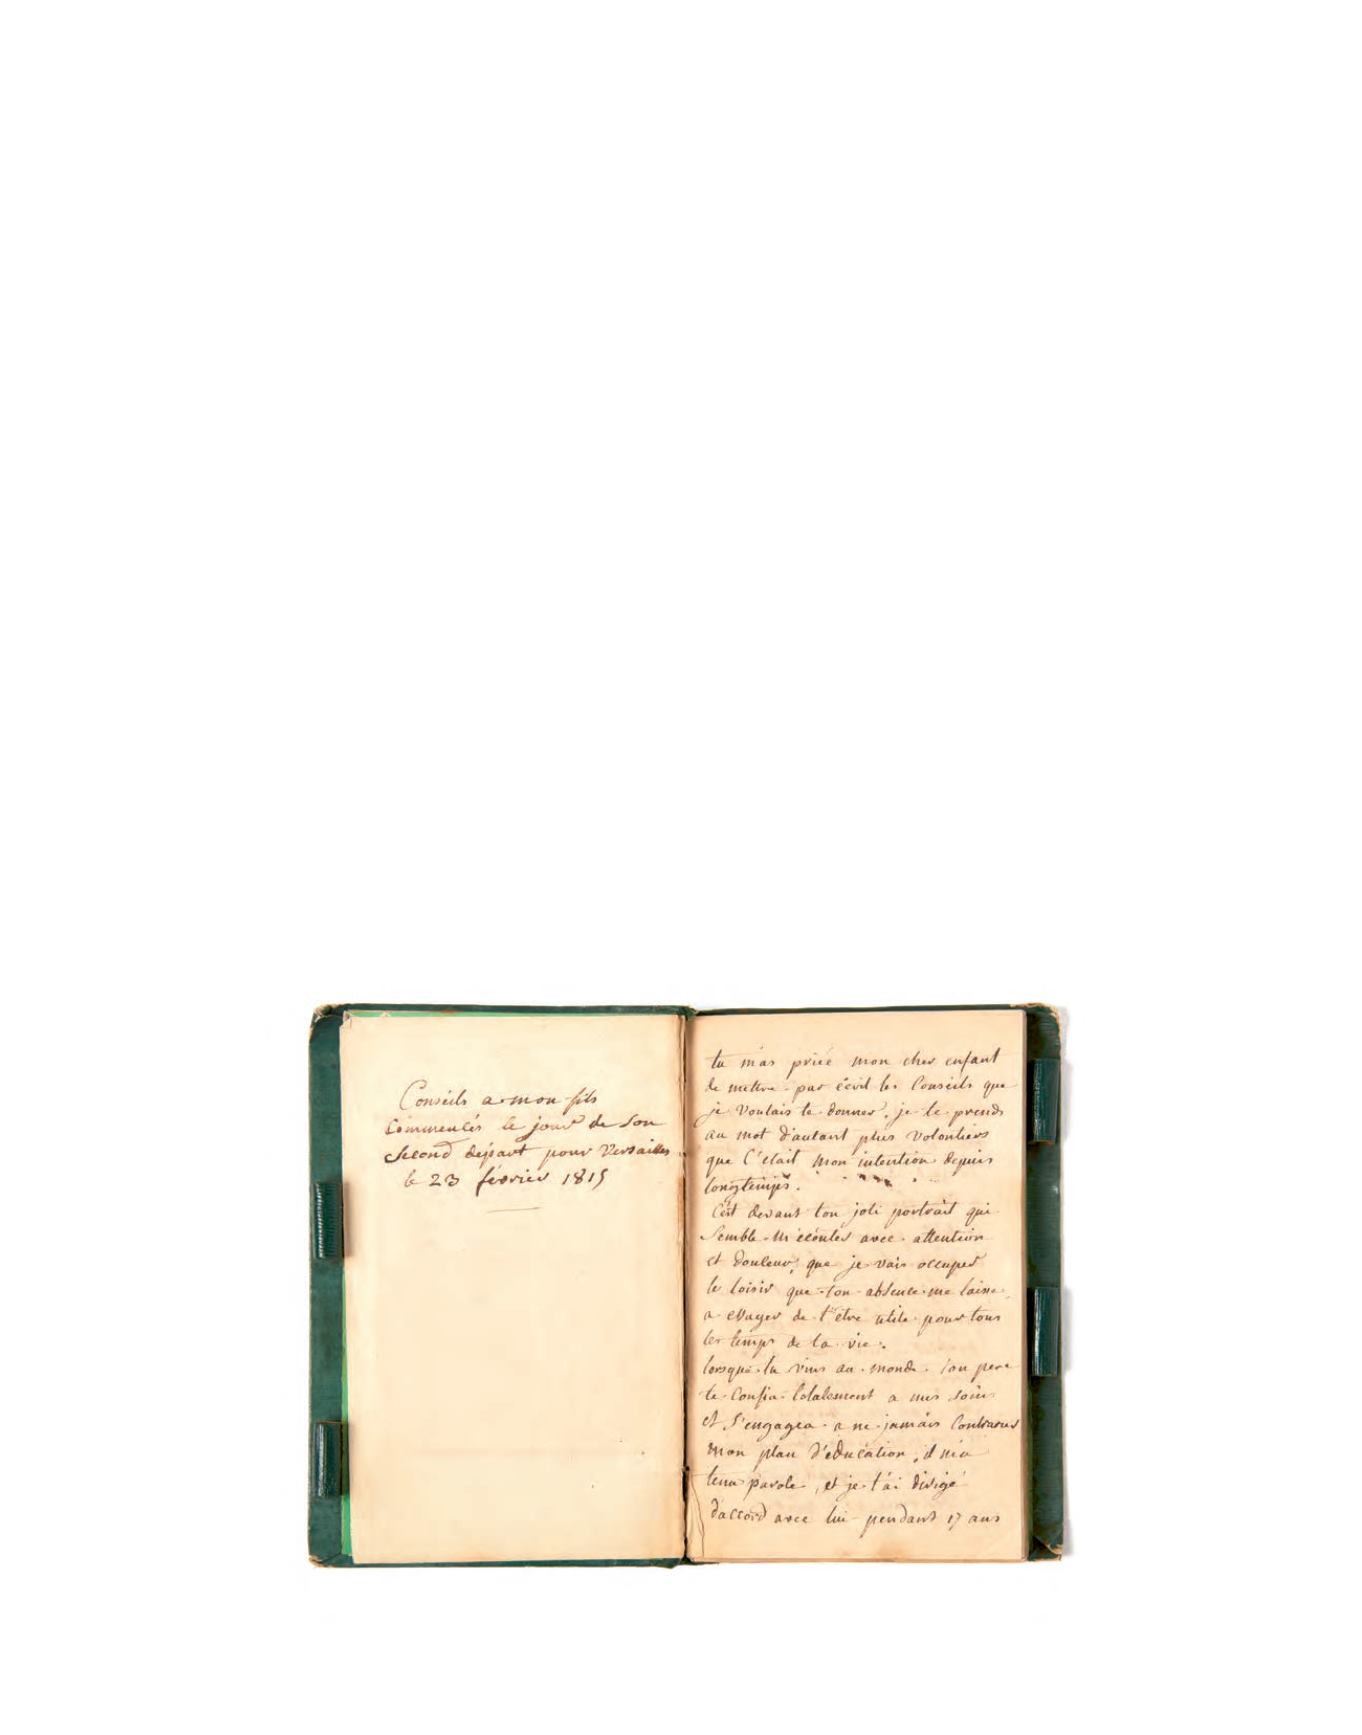 Conseils a mon fils
commencés le jour de son
second départ pour Versailles
le 23 février 1815
tu m'as priée mon cher enfant
de mettre par écrit les conseils que
je voulais te donner, je te prends
au mot d'autant plus volontiers
que c'était mon intention depuis
longtemps.
C'est devant ton joli portrait qui
semble m'écouter avec attention
et douleur, que je vais occuper
le loisir que ton absence me laisse,
a essayer de t'être utile pour tous
les temps de la vie.
lorsque tu vins au monde ton pere
te confia totalement a mes soins
et s'engagea a ne jamais contrarier
mon plan d'éducation, il m'a
tenu parole, et je t'ai dirigé
d'accord avec lui pendant 17 ans